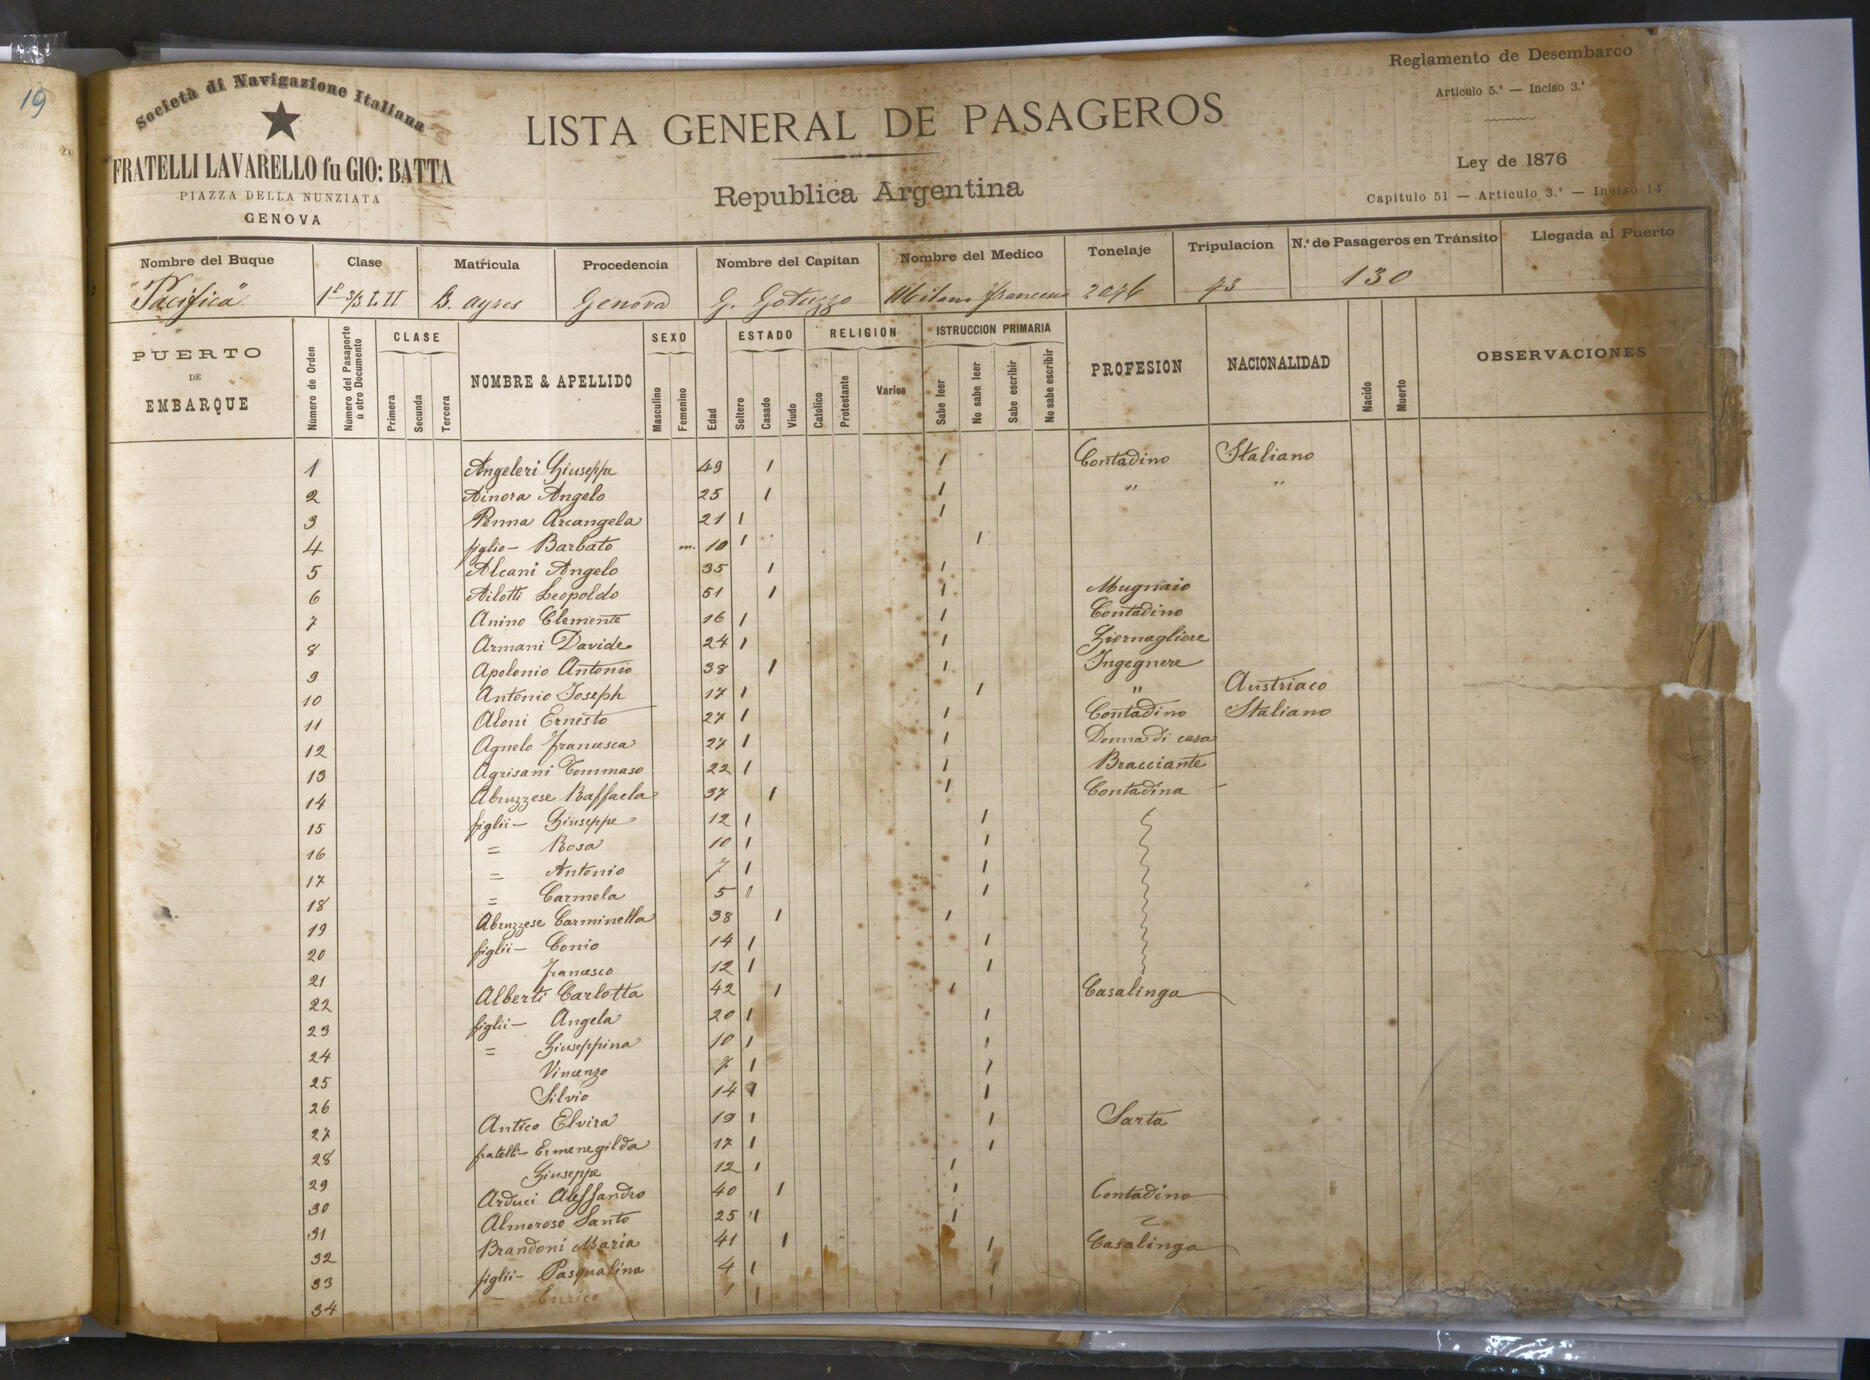 19
Società di Navigazione Italiana
FRATELLI LAVARELLO fu GIO: BATTA
PIAZZA DELLA NUNZIATA
GENOVA
LISTA GENERAL DE PASAGEROS
Republica Argentina
Reglamento de Desembarco
Articulo 5.º — Inciso 3.º
Ley de 1876
Capitulo 51 — Articulo 3.º — Inciso 14
Nombre del Buque Clase Matricula Procedencia Nombre del Capitan Nombre del Medico Tonelaje Tripulacion N.º de Pasageros en Tránsito Llegada al Puerto
"Pacifica" B. ayres Genova G. Gotuzzo Milano 2046 73 130
PUERTO DE EMBARQUE Número de Orden Número del Pasaporte ú otro Documento CLASE Primera Secunda Tercera NOMBRE & APELLIDO SEXO Masculino Femenino Edad ESTADO Soltero Casado Viudo RELIGION Catolico Protestante Varios ISTRUCCION PRIMARIA Sabe leer No sabe leer Sabe escribir No sabe escribir PROFESION NACIONALIDAD Nacido Muerto OBSERVACIONES
1 Angeleri Giuseppe 49 1 1 Contadino Italiano
2 Ainora Angelo 25 1 1 " "
3 Penna Arcangela 21 1 1
4 figlio — Barbato m. 10 1 1
5 Alcani Angelo 35 1 1
6 Ailotti Leopoldo 51 1 1 Mugnaio
7 Anino Clemente 16 1 1 Contadino
8 Armani Davide 24 1 1 Giornagliere
9 Apolonio Antonio 38 1 1 Ingegnere
10 Antonio Joseph 17 1 1 " Austriaco
11 Aloni Ernesto 27 1 1 Contadino Italiano
12 Agnelo Francesca 27 1 1 Donna di casa
13 Agrisani Tommaso 22 1 1 Bracciante
14 Abruzzese Raffaela 37 1 1 Contadina
15 figlii — Giuseppe 12 1 1
16 = Rosa 10 1 1
17 = Antonio 7 1 1
18 = Carmela 5 1 1
19 Abruzzese Carminella 38 1 1
20 figlii — Conio 14 1 1
21 Francesco 12 1 1
22 Alberti Carlotta 42 1 1 Casalinga
23 figlii — Angela 20 1 1
24 = Giuseppina 10 1 1
25 Vincenzo 7 1 1
26 Silvio 14 1 1
27 Antico Elvira 19 1 1 Sarta
28 fratelli — Ermenegilda 17 1 1
29 Giuseppe 12 1 1
30 Arduci Alessandro 40 1 1 Contadino
31 Almoroso Santo 25 1 1
32 Brandoni Maria 41 1 1 Casalinga
33 figlii — Pasqualina 4 1 1
34 — Enrico 1 1 1